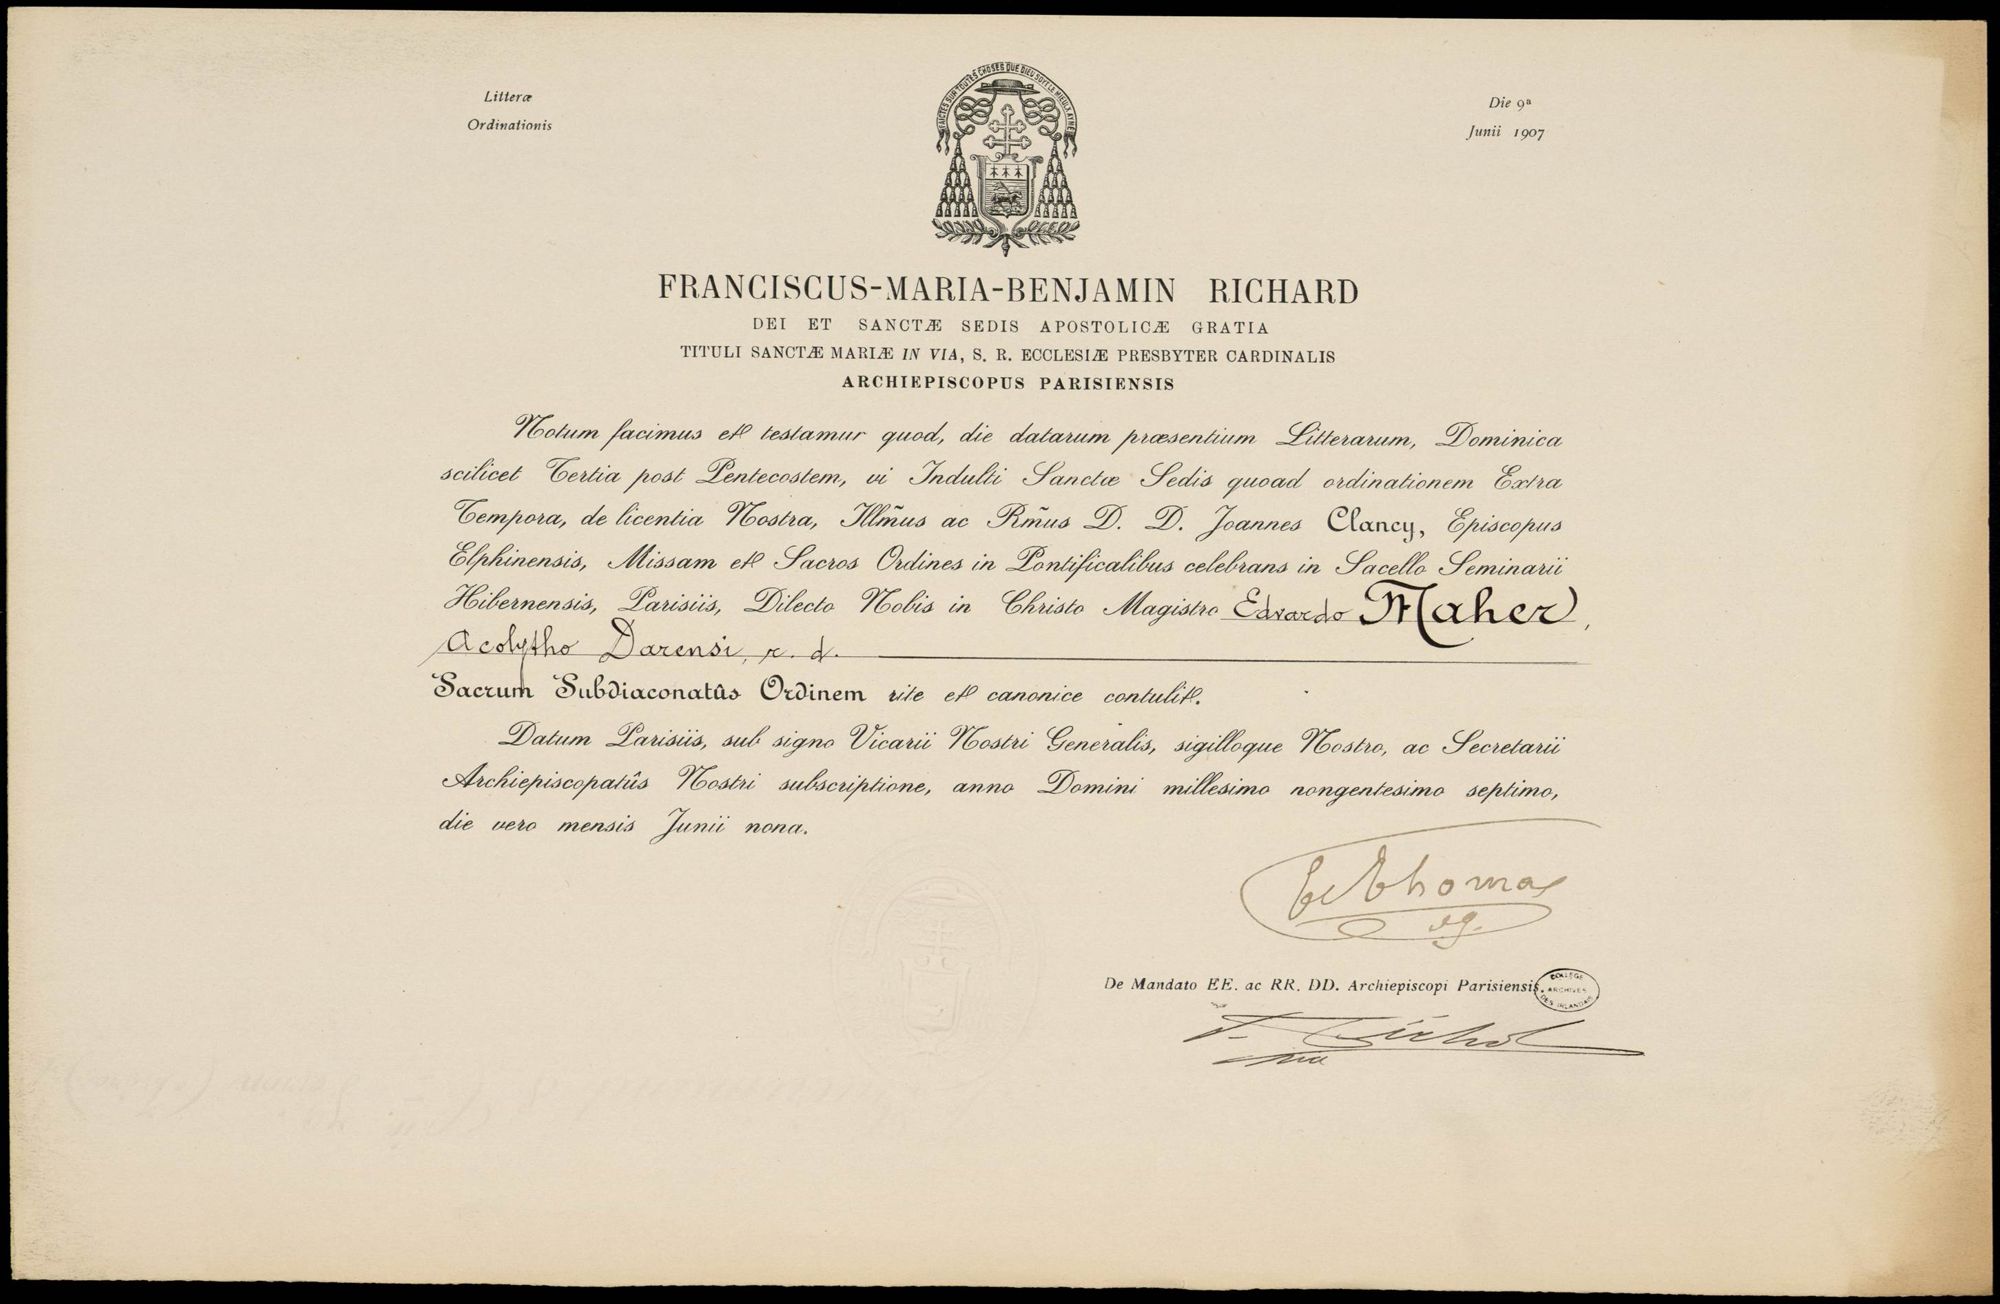 Litteræ
Ordinationis
Die 9ª
Junii 1907
FAICTES SUR TOUTES CHOSES QUE DIEU SOYT LE MIEULX AYMÉ
FRANCISCUS-MARIA-BENJAMIN RICHARD
DEI ET SANCTÆ SEDIS APOSTOLICÆ GRATIA
TITULI SANCTÆ MARIÆ IN VIA, S. R. ECCLESIÆ PRESBYTER CARDINALIS
ARCHIEPISCOPUS PARISIENSIS
Notum facimus et testamur quod, die datarum præsentium Litterarum, Dominica
scilicet Tertia post Pentecostem, vi Indulti Sanctæ Sedis quoad ordinationem Extra
Tempora, de licentia Nostra, Illm̃us ac Rm̃us D. D. Joannes Clancy, Episcopus
Elphinensis, Missam et Sacros Ordines in Pontificalibus celebrans in Sacello Seminarii
Hibernensis, Parisiis, Dilecto Nobis in Christo Magistro Edvardo Maher,
Acolytho Darensi, r. d.
Sacrum Subdiaconatûs Ordinem rite et canonice contulit.
Datum Parisiis, sub signo Vicarii Nostri Generalis, sigilloque Nostro, ac Secretarii
Archiepiscopatûs Nostri subscriptione, anno Domini millesimo nongentesimo septimo,
die vero mensis Junii nona.
Thomas
vg.
De Mandato EE. ac RR. DD. Archiepiscopi Parisiensis.
COLLEGE
ARCHIVES
DES IRLANDAIS